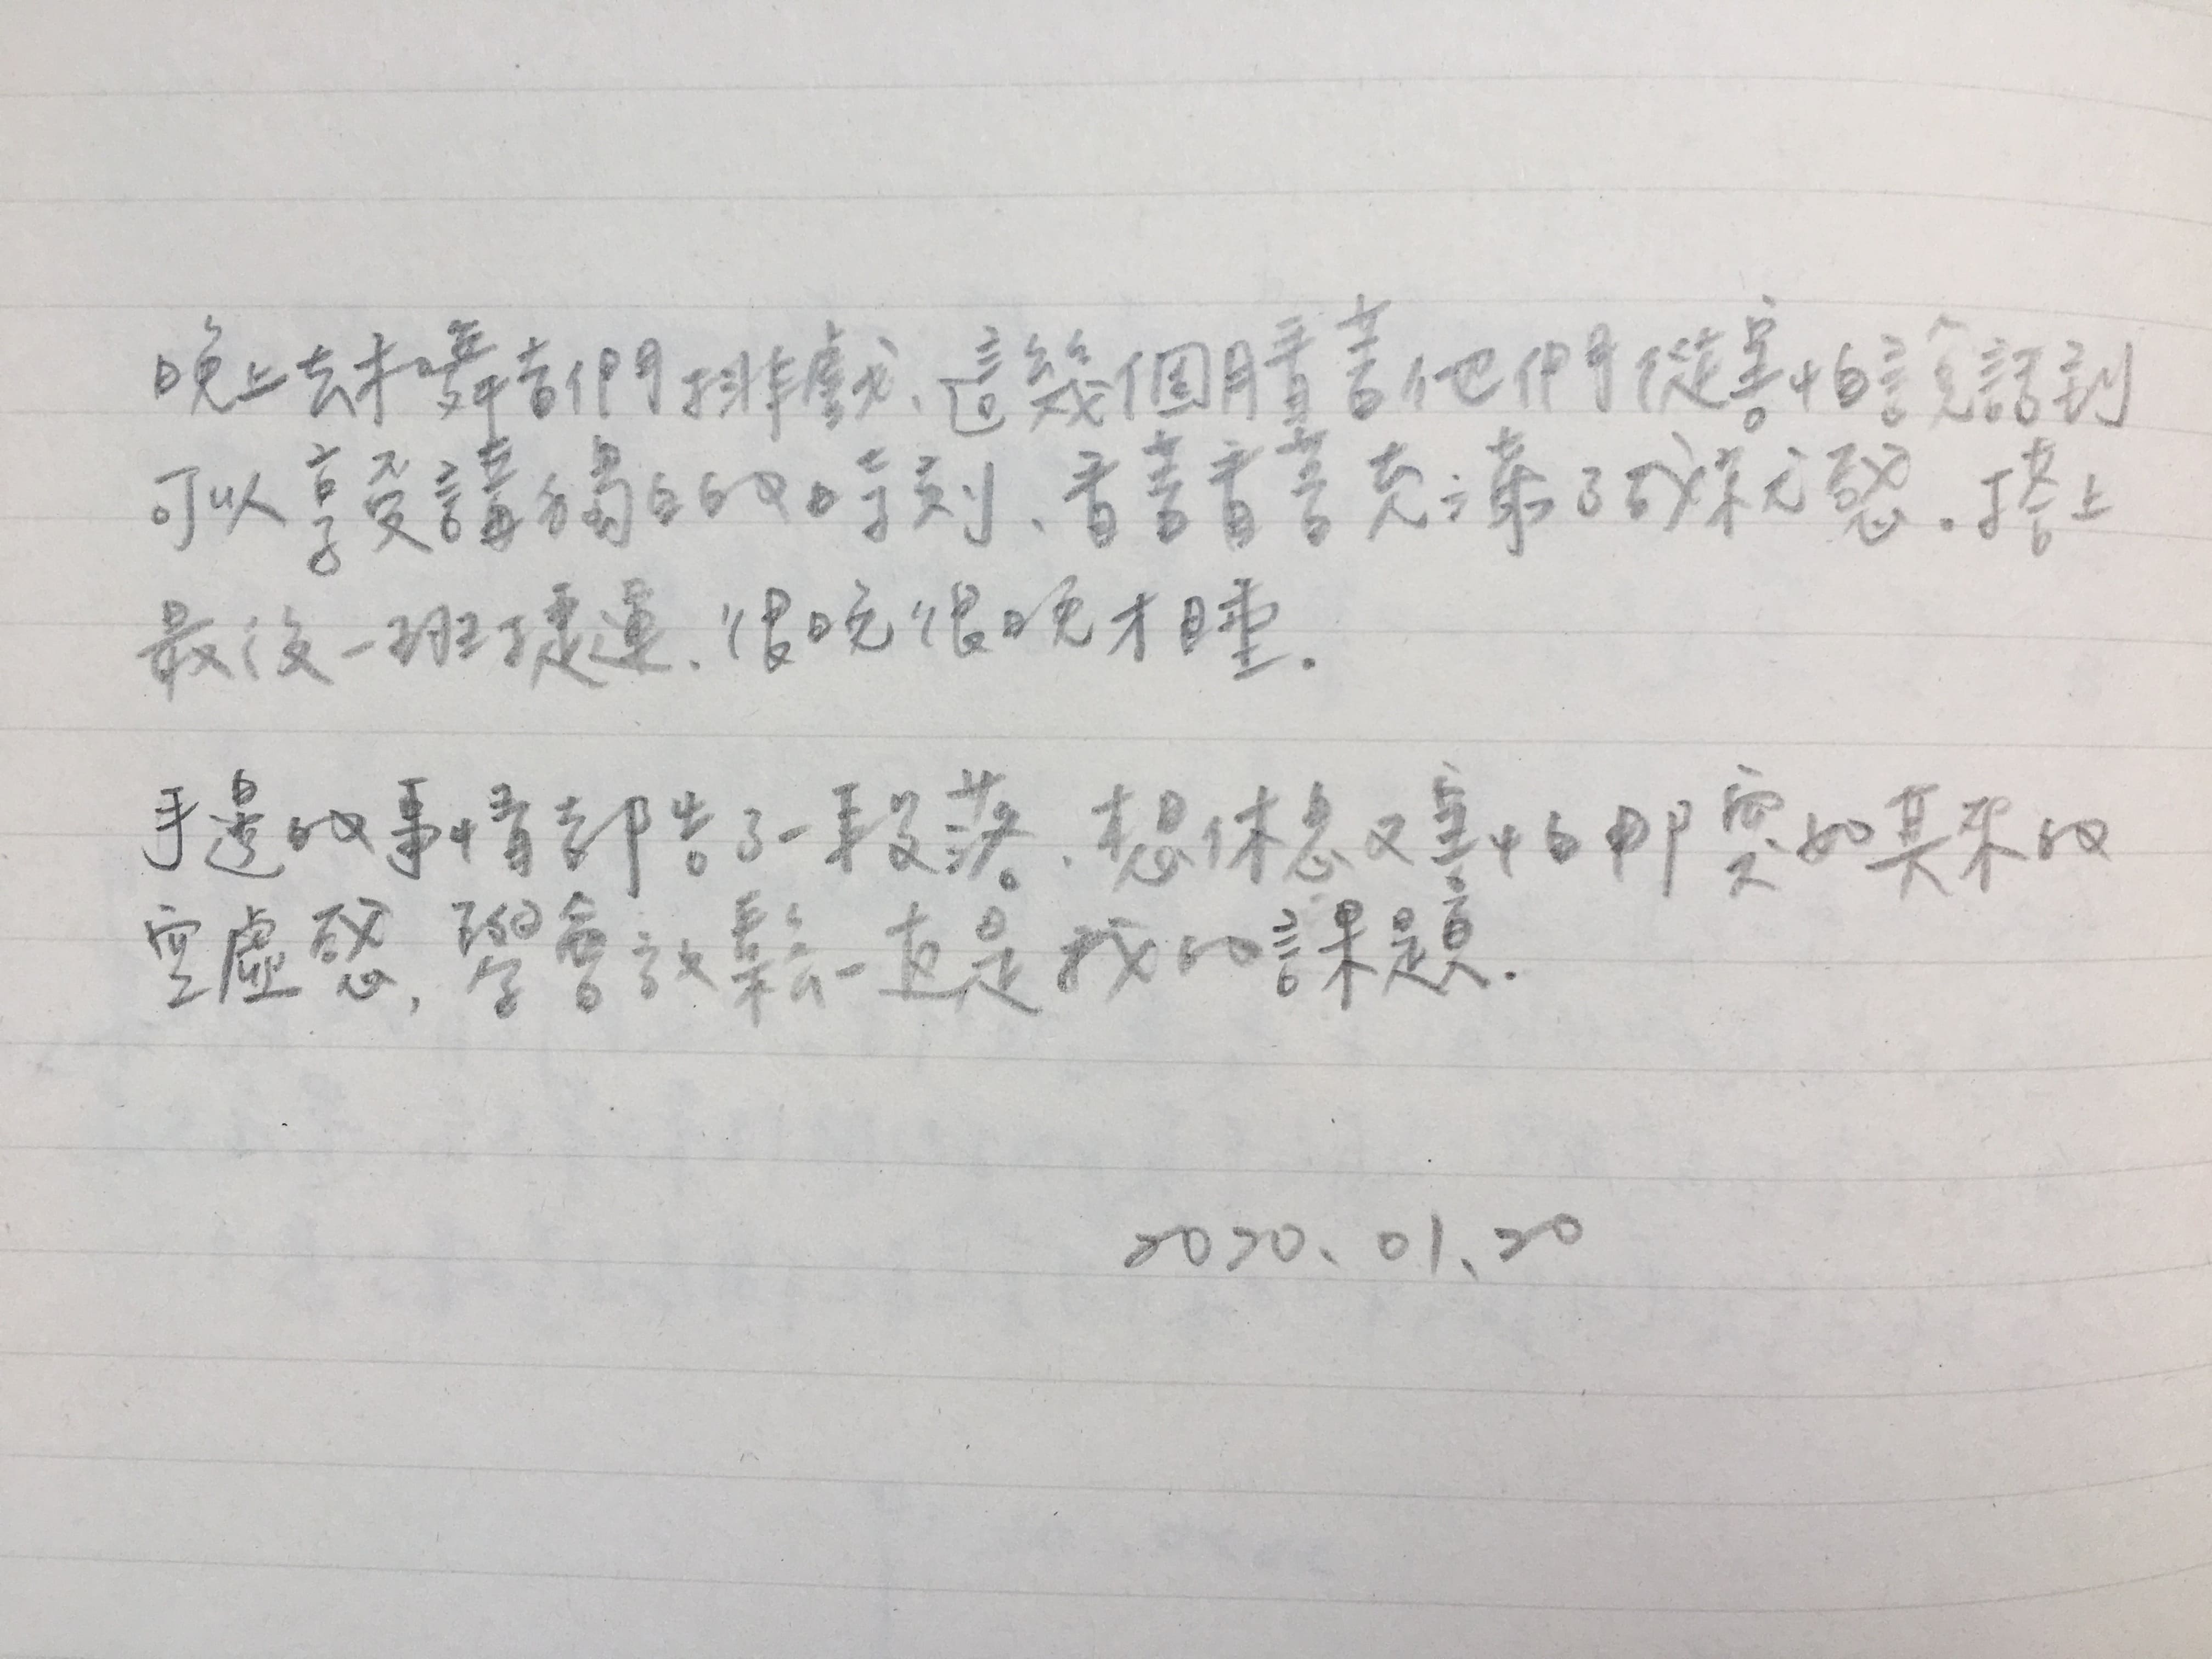 晚上去才舞者們排戲、這幾個月看著他們從害怕說話到
可以享受講獨白的時刻、看著看著充滿了成就感。搭上
最後一班捷運、很晚很晚才睡.
手邊的事情都告了一段落、想休息又害怕那突如其來的
空虛感, 學會放鬆一直是我的課題.
2020、01、20